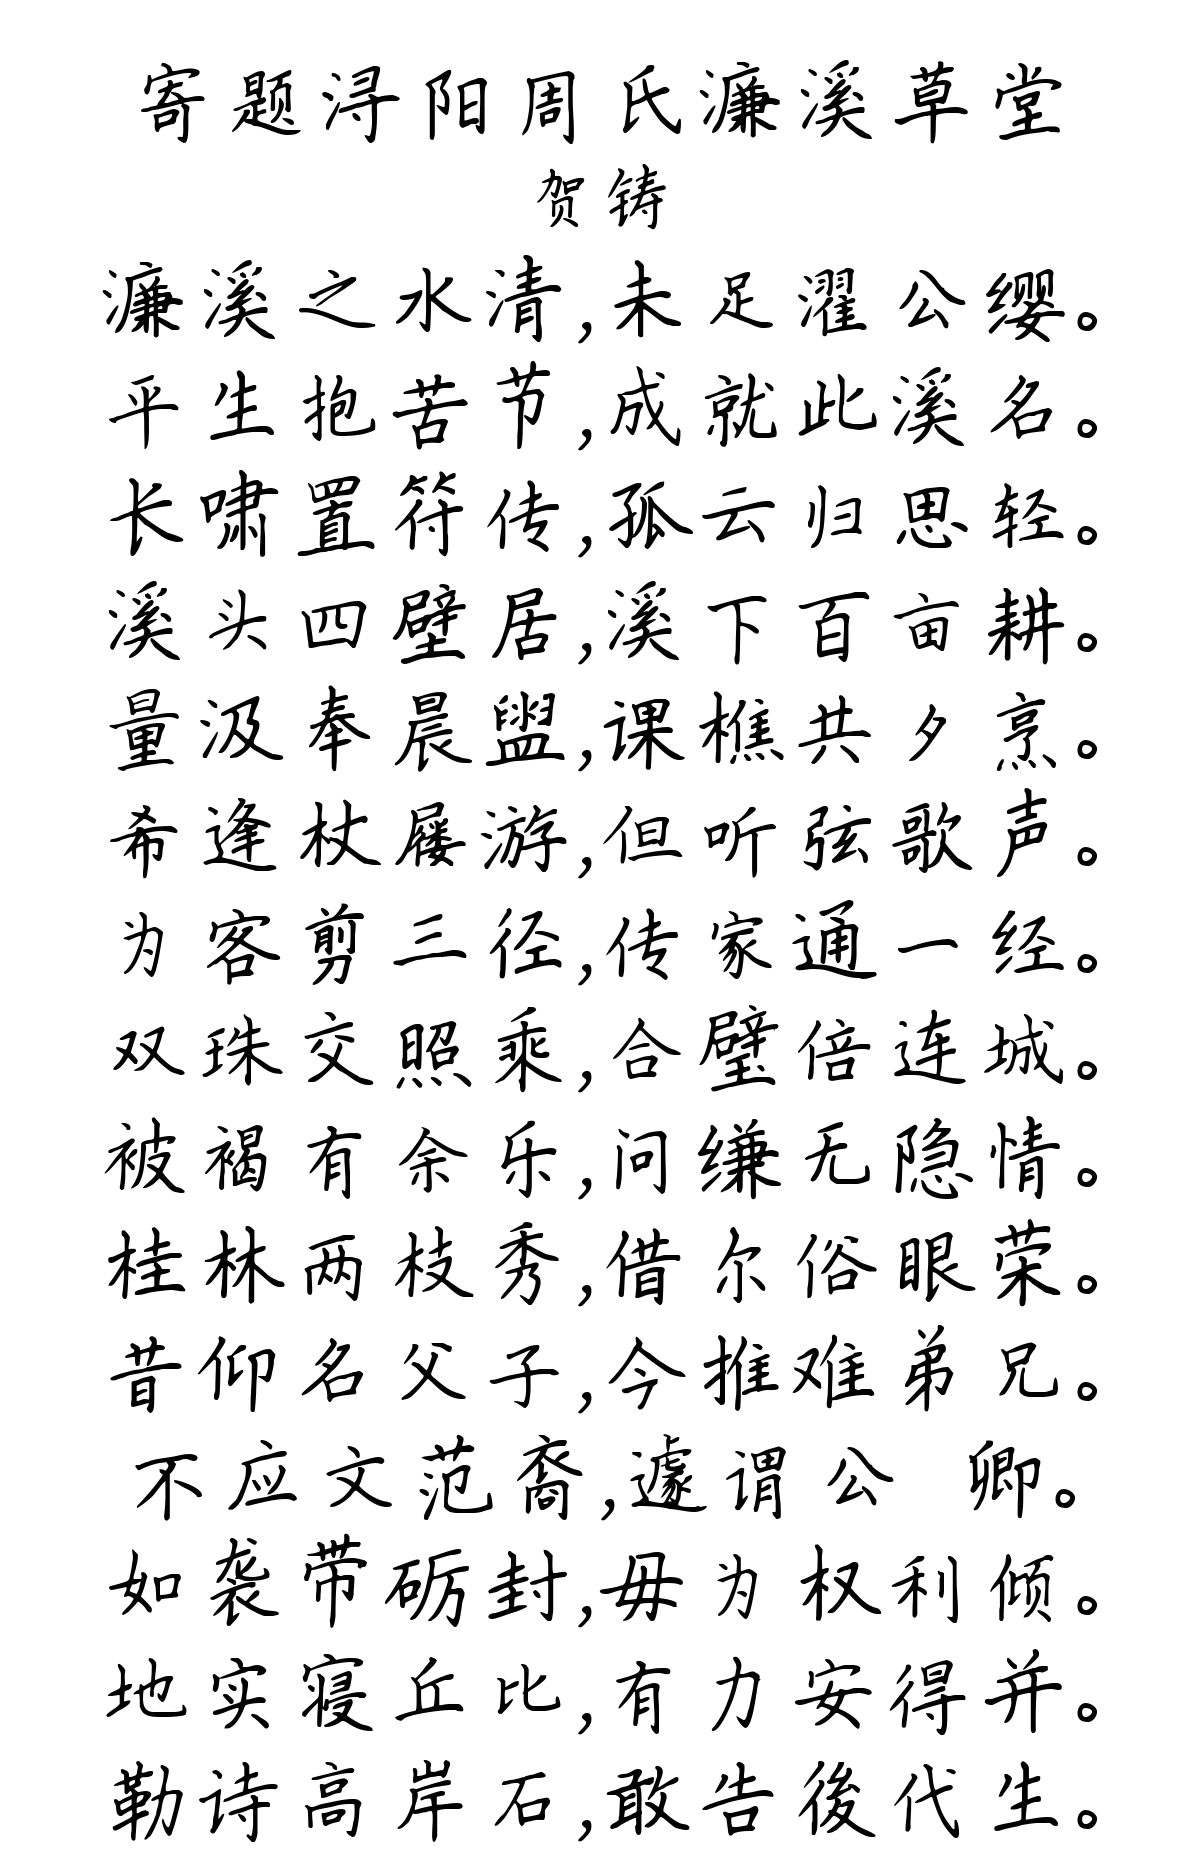 寄题浔阳周氏濂溪草堂
贺铸
濂溪之水清,未足濯公缨。
平生抱苦节,成就此溪名。
长啸置符传,孤云归思轻。
溪头四壁居,溪下百亩耕。
量汲奉晨盥,课樵共夕烹。
希逢杖屦游,但听弦歌声。
为客剪三径,传家通一经。
双珠交照乘,合璧倍连城。
被褐有余乐,问缣无隐情。
桂林两枝秀,借尔俗眼荣。
昔仰名父子,今推难弟兄。
不应文范裔,遽谓公 卿。
如袭带砺封,毋为权利倾。
地实寝丘比,有力安得并。
勒诗高岸石,敢告後代生。